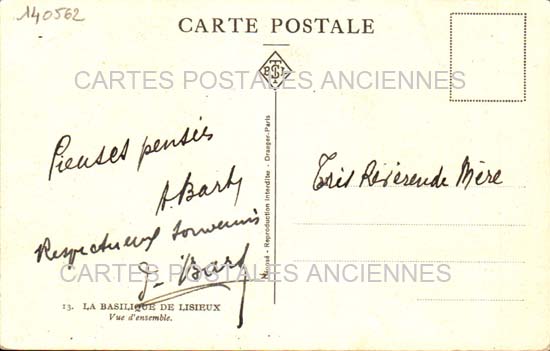 140562
CARTE POSTALE
CARTES POSTALES ANCIENNES
Pieuses pensées
A Bart
Respectueux souvenirs
J. Bart
Très Révérende Mère
Reproduction Interdite - Draeger-Paris
CARTES POSTALES ANCIENNES
13. LA BASILIQUE DE LISIEUX
Vue d'ensemble.